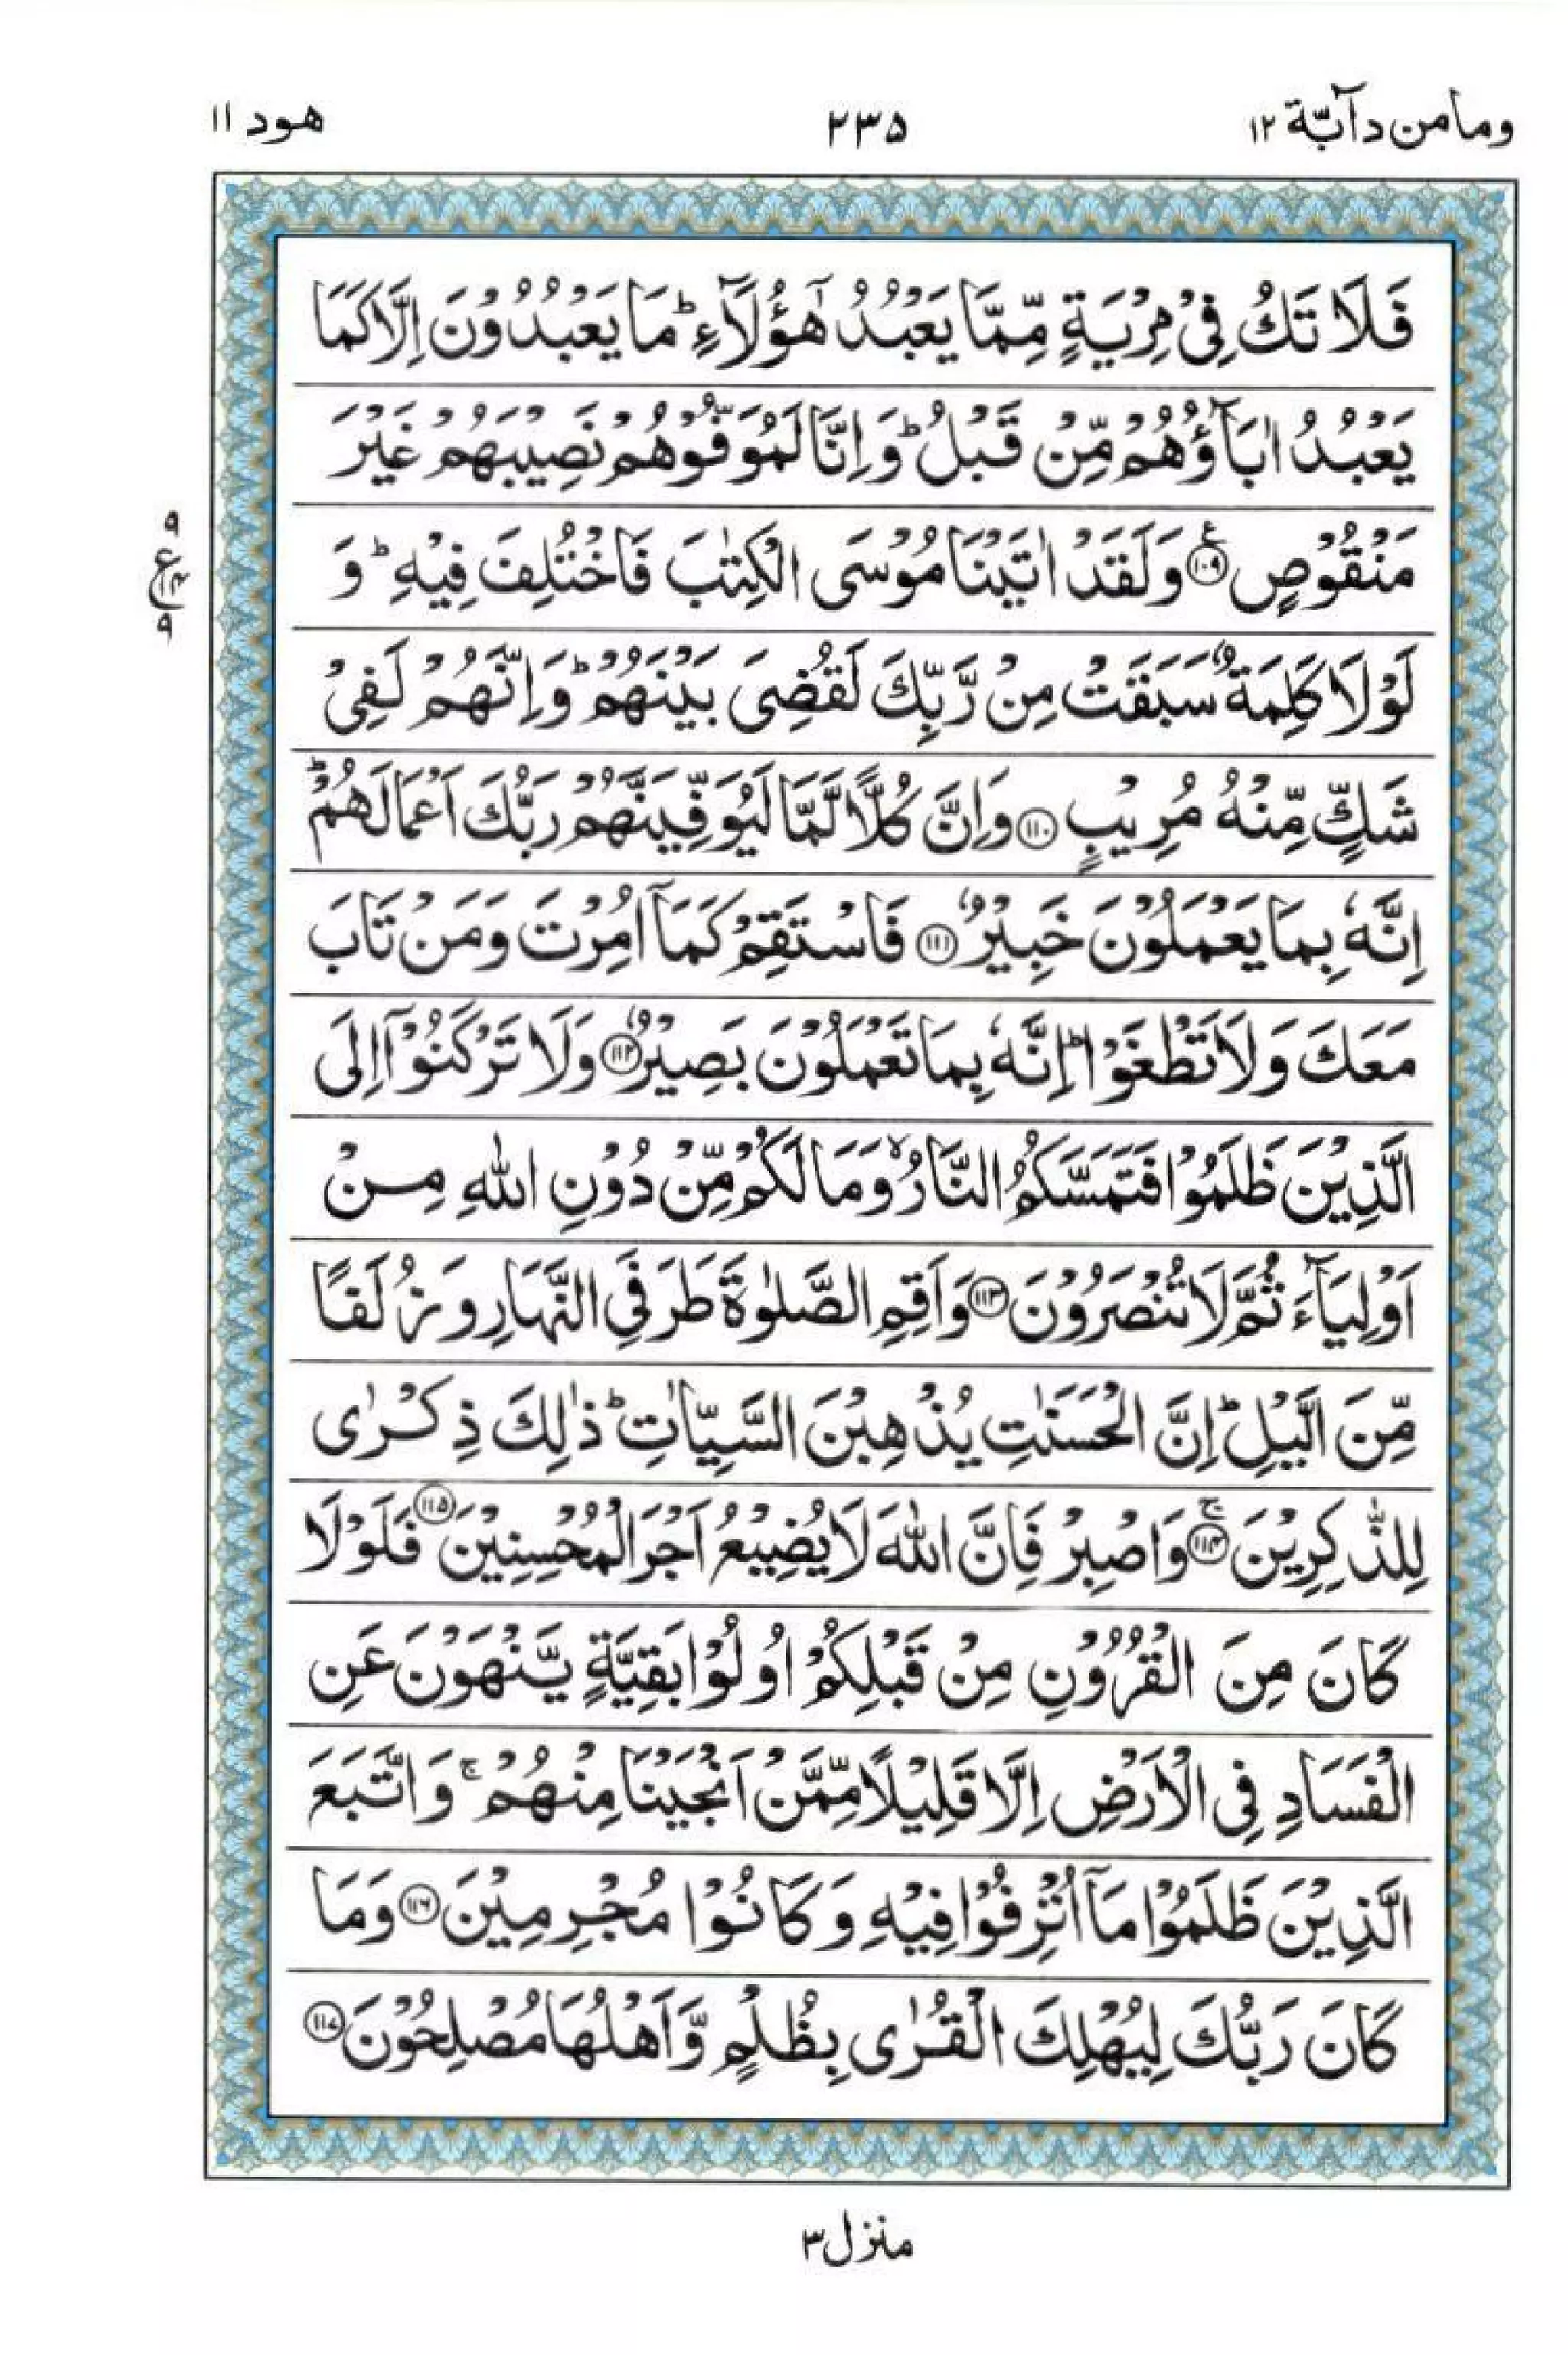 ومامن دآبّة ١٢
٢٣٥
هود ١١
فَلَا تَكُ فِىْ مِرْيَةٍ مِّمَّا يَعْبُدُ هٰٓؤُلَآءِ ؕ مَا يَعْبُدُوْنَ اِلَّا كَمَا
يَعْبُدُ اٰبَآؤُهُمْ مِّنْ قَبْلُ ؕ وَاِنَّا لَمُوَفُّوْهُمْ نَصِيْبَهُمْ غَيْرَ
مَنْقُوْصٍ ۧ ﴿۱۰۹﴾ وَلَقَدْ اٰتَيْنَا مُوْسَى الْكِتٰبَ فَاخْتُلِفَ فِيْهِ ؕ وَ
لَوْلَا كَلِمَةٌ سَبَقَتْ مِنْ رَّبِّكَ لَقُضِىَ بَيْنَهُمْ ؕ وَاِنَّهُمْ لَفِىْ
شَكٍّ مِّنْهُ مُرِيْبٍ ﴿۱۱۰﴾ وَاِنَّ كُلًّا لَّمَّا لَيُوَفِّيَنَّهُمْ رَبُّكَ اَعْمَالَهُمْ ؕ
اِنَّهٗ بِمَا يَعْمَلُوْنَ خَبِيْرٌ ﴿۱۱۱﴾ فَاسْتَقِمْ كَمَآ اُمِرْتَ وَمَنْ تَابَ
مَعَكَ وَلَا تَطْغَوْا ؕ اِنَّهٗ بِمَا تَعْمَلُوْنَ بَصِيْرٌ ﴿۱۱۲﴾ وَلَا تَرْكَنُوْۤا اِلَى
الَّذِيْنَ ظَلَمُوْا فَتَمَسَّكُمُ النَّارُ ۙ وَمَا لَكُمْ مِّنْ دُوْنِ اللّٰهِ مِنْ
اَوْلِيَآءَ ثُمَّ لَا تُنْصَرُوْنَ ﴿۱۱۳﴾ وَاَقِمِ الصَّلٰوةَ طَرَفَىِ النَّهَارِ وَزُلَفًا
مِّنَ الَّيْلِ ؕ اِنَّ الْحَسَنٰتِ يُذْهِبْنَ السَّيِّاٰتِ ؕ ذٰلِكَ ذِكْرٰى
لِلذّٰكِرِيْنَ ۚ ﴿۱۱۴﴾ وَاصْبِرْ فَاِنَّ اللّٰهَ لَا يُضِيْعُ اَجْرَ الْمُحْسِنِيْنَ ﴿۱۱۵﴾ فَلَوْلَا
كَانَ مِنَ الْقُرُوْنِ مِنْ قَبْلِكُمْ اُولُوْا بَقِيَّةٍ يَّنْهَوْنَ عَنِ
الْفَسَادِ فِى الْاَرْضِ اِلَّا قَلِيْلًا مِّمَّنْ اَنْجَيْنَا مِنْهُمْ ۚ وَاتَّبَعَ
الَّذِيْنَ ظَلَمُوْا مَآ اُتْرِفُوْا فِيْهِ وَكَانُوْا مُجْرِمِيْنَ ﴿۱۱۶﴾ وَمَا
كَانَ رَبُّكَ لِيُهْلِكَ الْقُرٰى بِظُلْمٍ وَّاَهْلُهَا مُصْلِحُوْنَ ﴿۱۱۷﴾
٩
ع
٩
منزل ٣